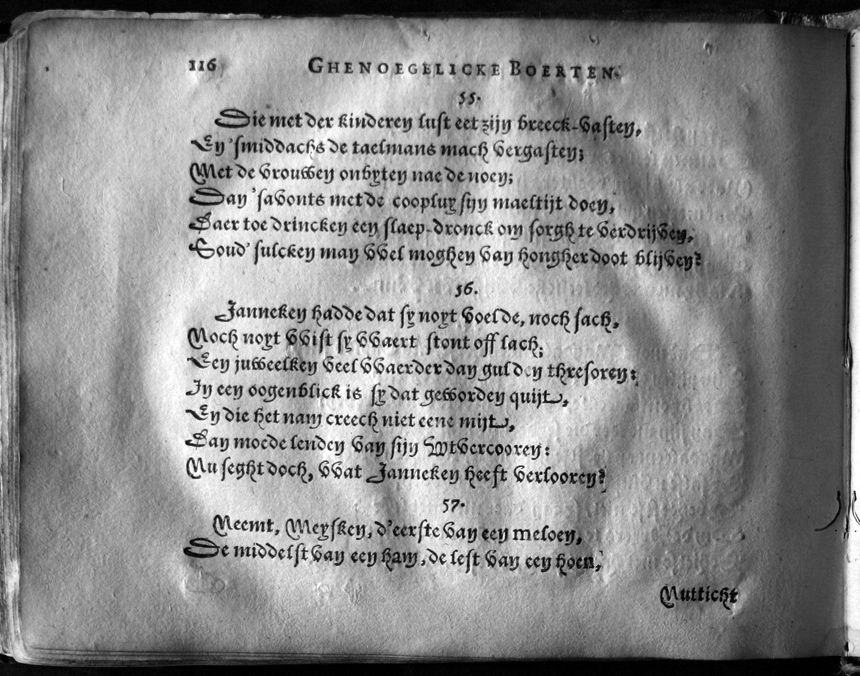 116 GHENOEGELICKE BOERTEN.
55.
Die met der kinderen lust eet zijn breeck-vasten,
En 'smiddachs de taelmans mach vergasten;
Met de vrouwen onbyten nae de noen;
Dan 'savonts met de coopluy sijn maeltijt doen,
Daer toe drincken een slaep-dronck om sorgh te verdrijven,
Soud' sulcken man wel moghen van hongher doot blijven?
56.
Janneken hadde dat sy noyt voelde, noch sach,
Noch noyt wist sy waert stont off lach;
Een juweelken veel waerder dan gulden thresoren:
In een oogenblick is sy dat geworden quijt,
En die het nam creech niet eene mijt,
Dan moede lenden van sijn Wtvercooren:
Nu seght doch, wat Janneken heeft verlooren?
57.
Neemt, Meysken, d'eerste van een meloen,
De middelst van een ham, de lest van een hoen,
Nutticht